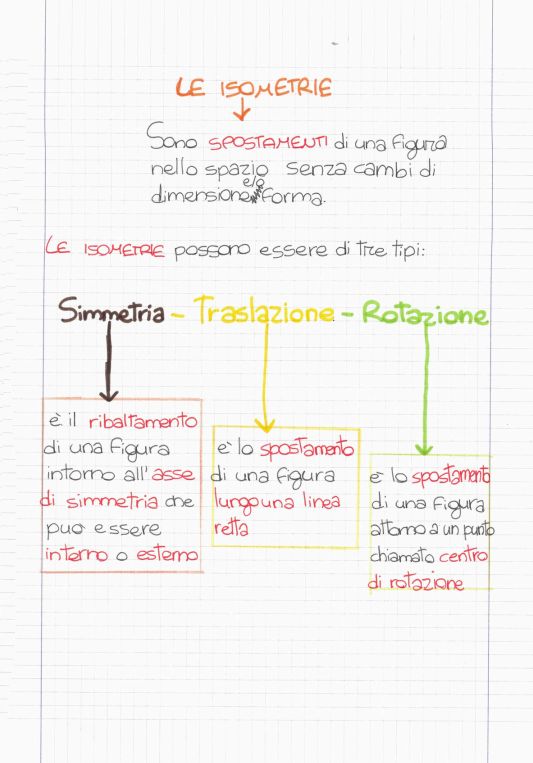 LE ISOMETRIE
Sono SPOSTAMENTI di una figura
nello spazio senza cambi di
dimensione e/o forma.
LE ISOMETRIE possono essere di tre tipi:
Simmetria - Traslazione - Rotazione
è il ribaltamento
di una figura
intorno all'asse
di simmetria che
può essere
interno o esterno
è lo spostamento
di una figura
lungo una linea
retta
è lo spostamento
di una figura
attorno a un punto
chiamato centro
di rotazione